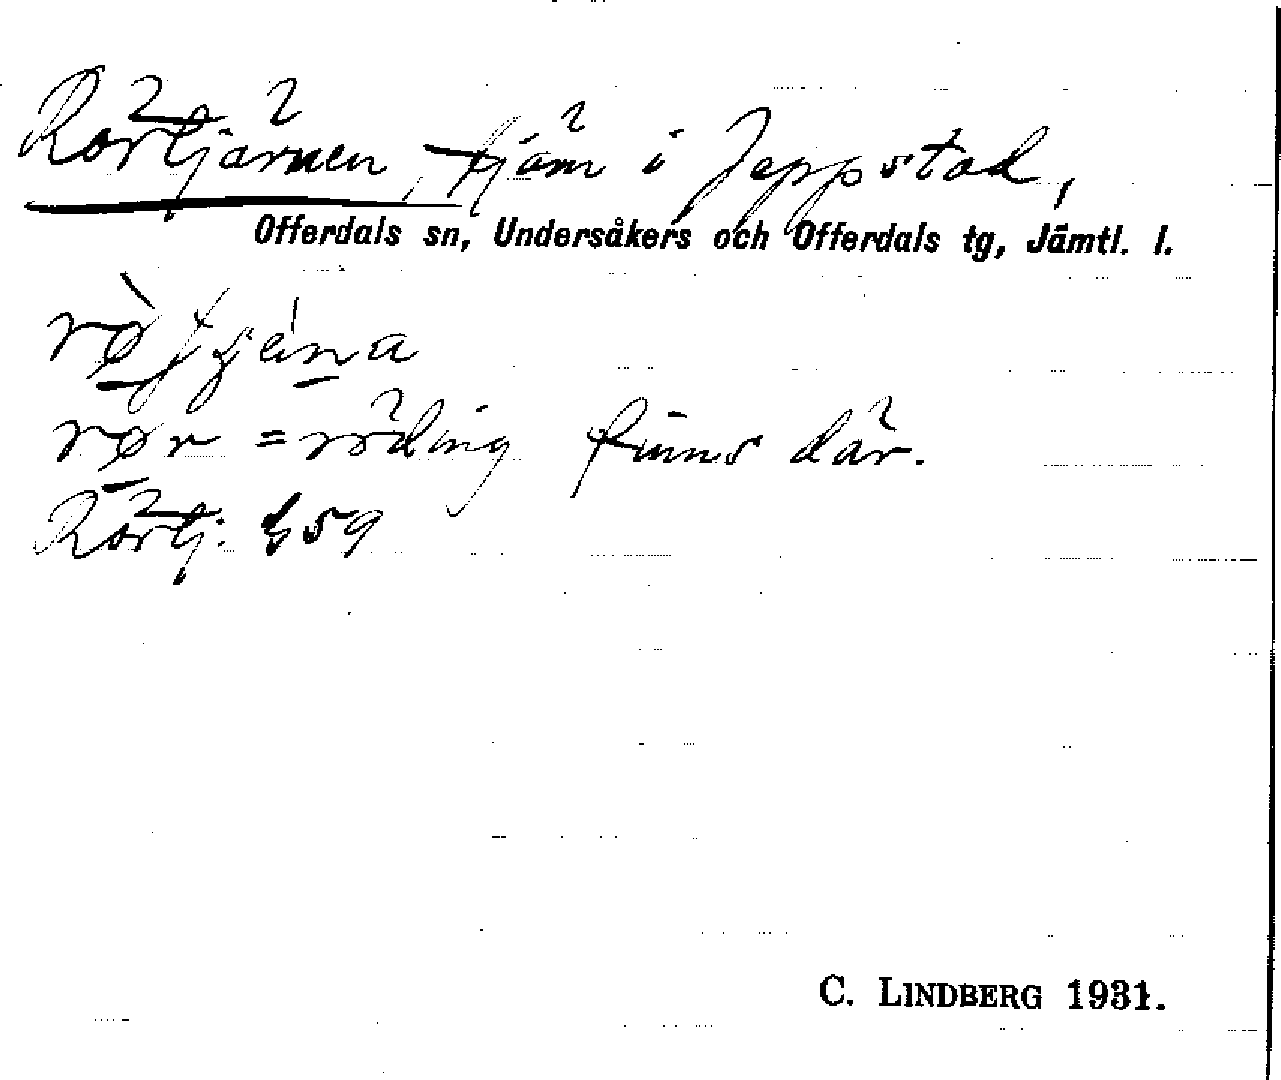 Rörtjärnen, tjärn i Jeppstad,
Offerdals sn, Undersåkers och Offerdals tg, Jämtl. l.
rør = röding finns där.
Rörtj. 859
C. LINDBERG 1931.